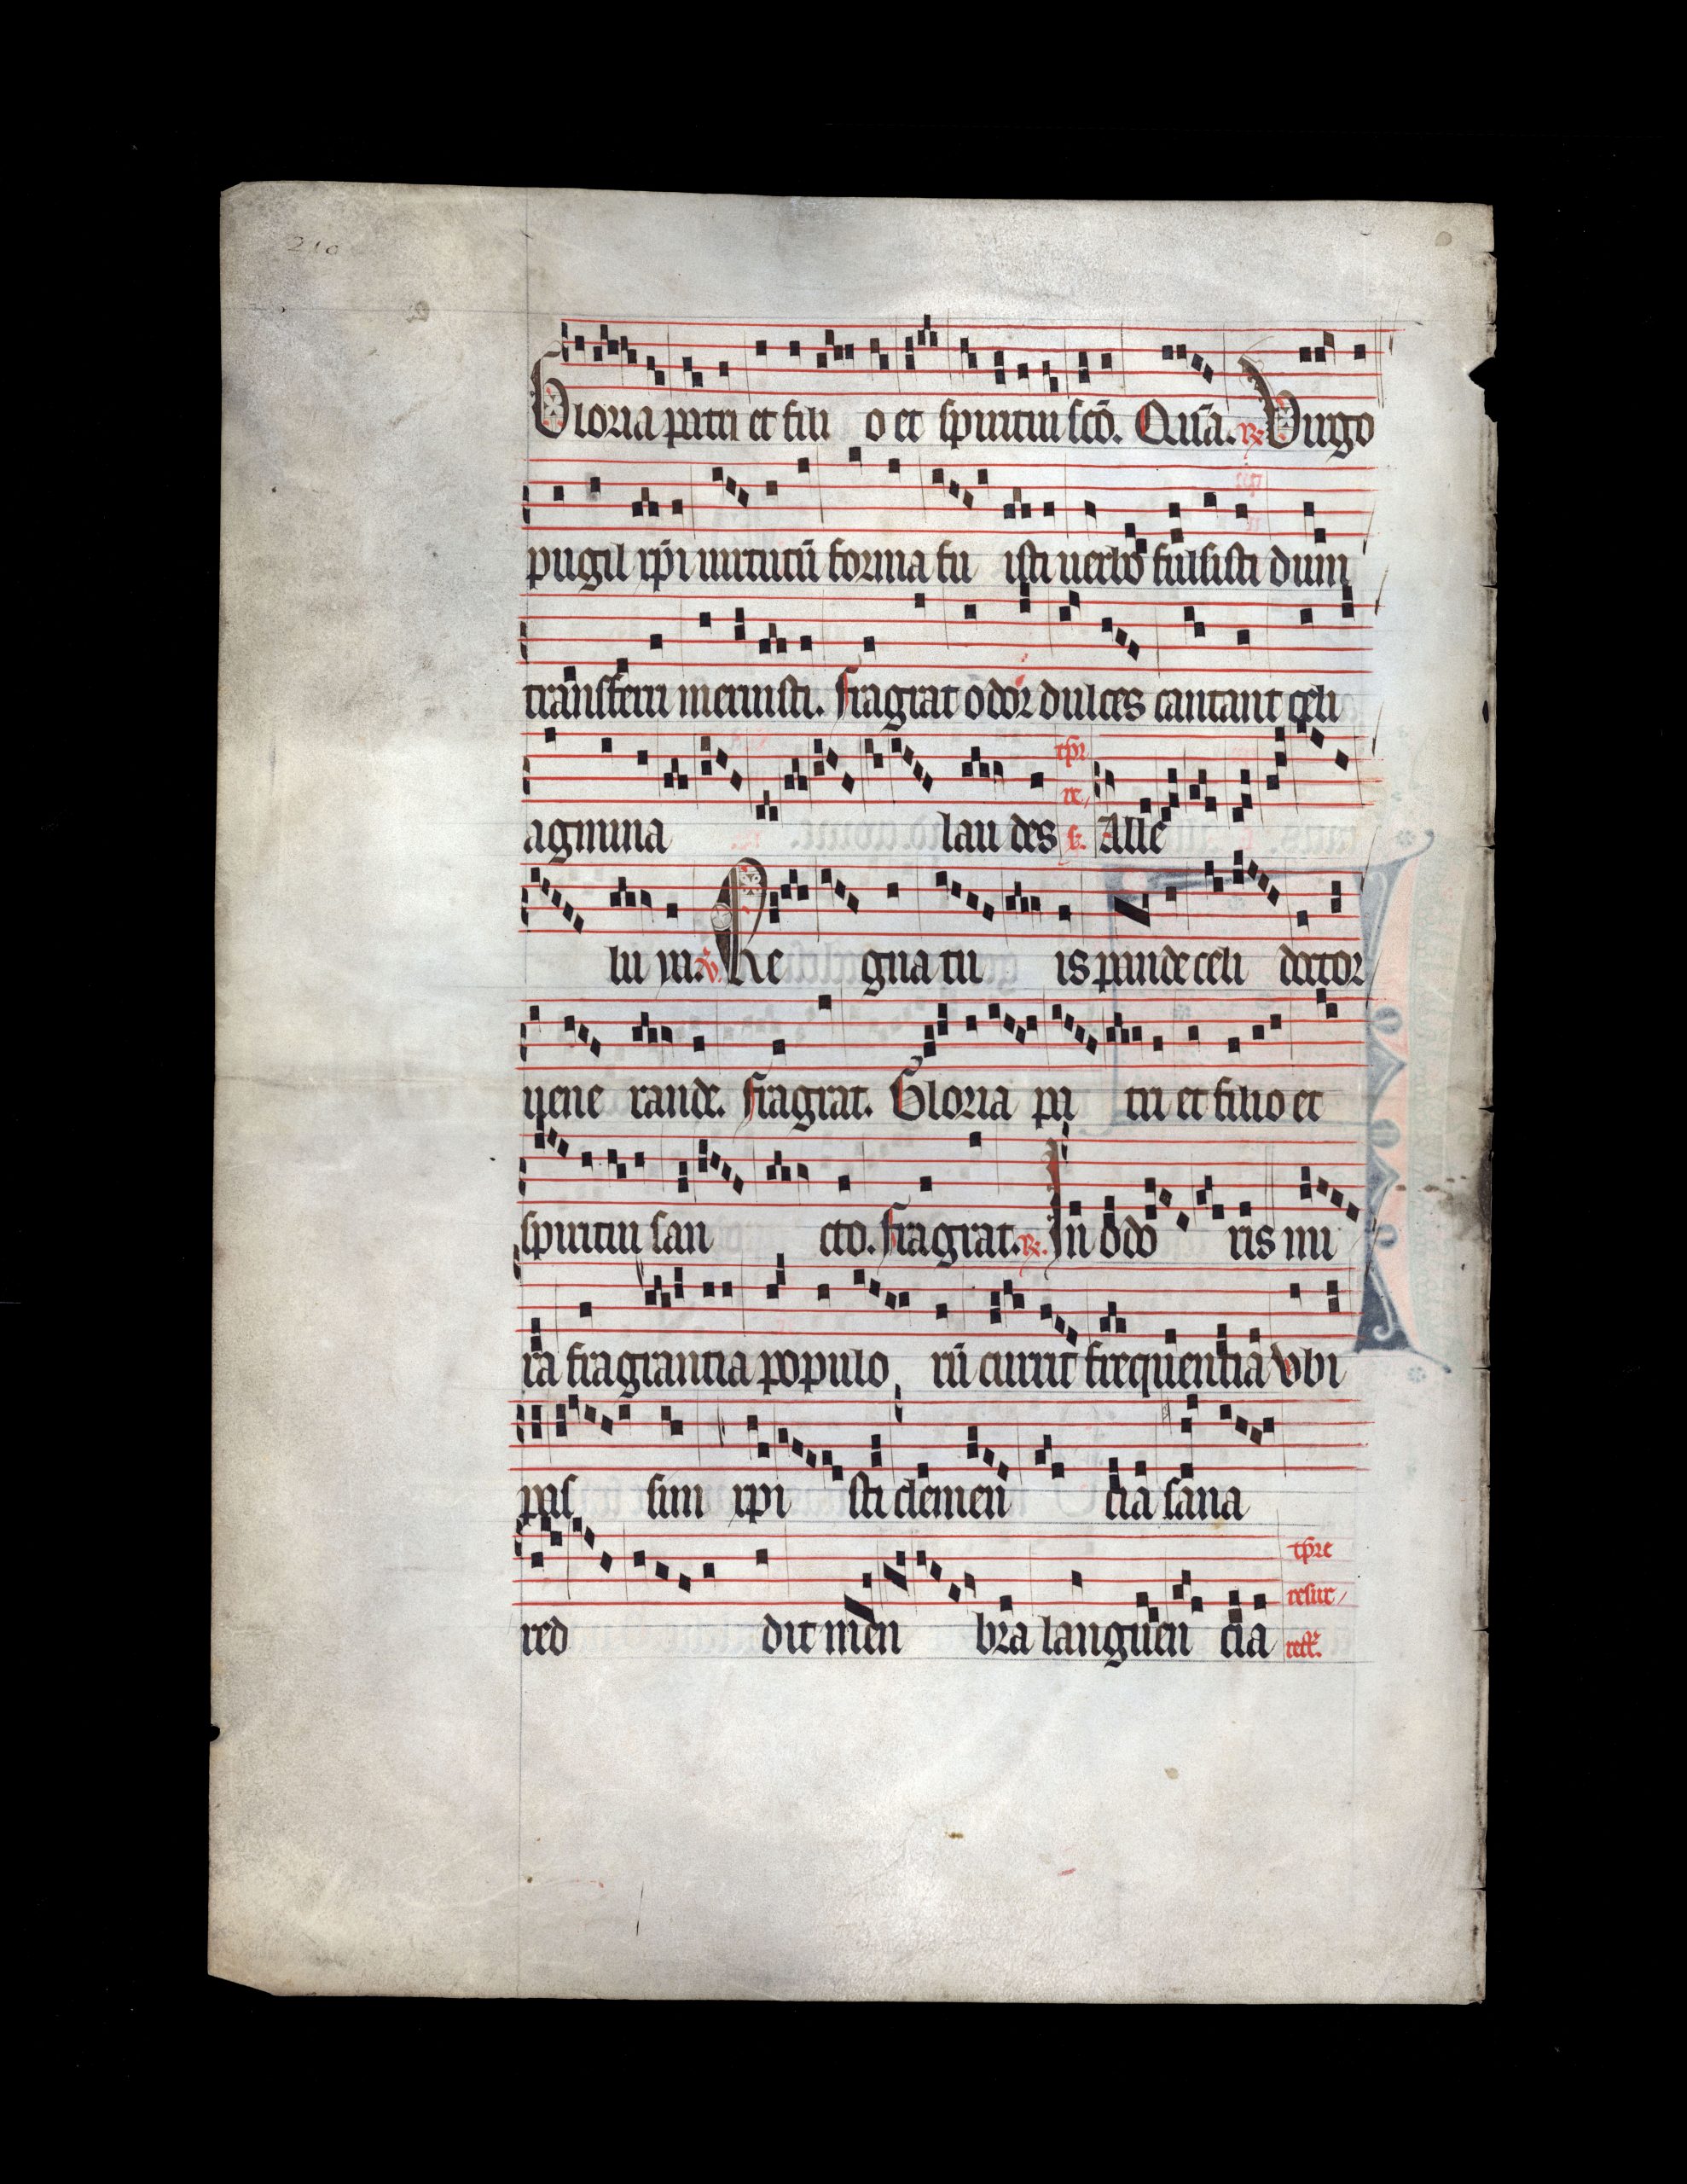 210
Gloria patri et fili o et spiritui scō. Quia. ℞ Virgo
pugil xp̄i uirtutū forma fu isti uerbo fulsisti dum
transferri meruisti. Fragrat odor dulces cantant celi
agmina lau des tp̄r re, s. Alle
lu ya. ℣. Re gna tu is pande celi doctor
uene rande. Fragrat. Gloria pa tri et filio et
spiritui san cto. Fragrat. ℞. In odo ris mi
ra fragrantia populo rū currit frequentia vbi
pas sim xpi sti clemen cia sana
red dit men bra languen cia tp̄re resur/